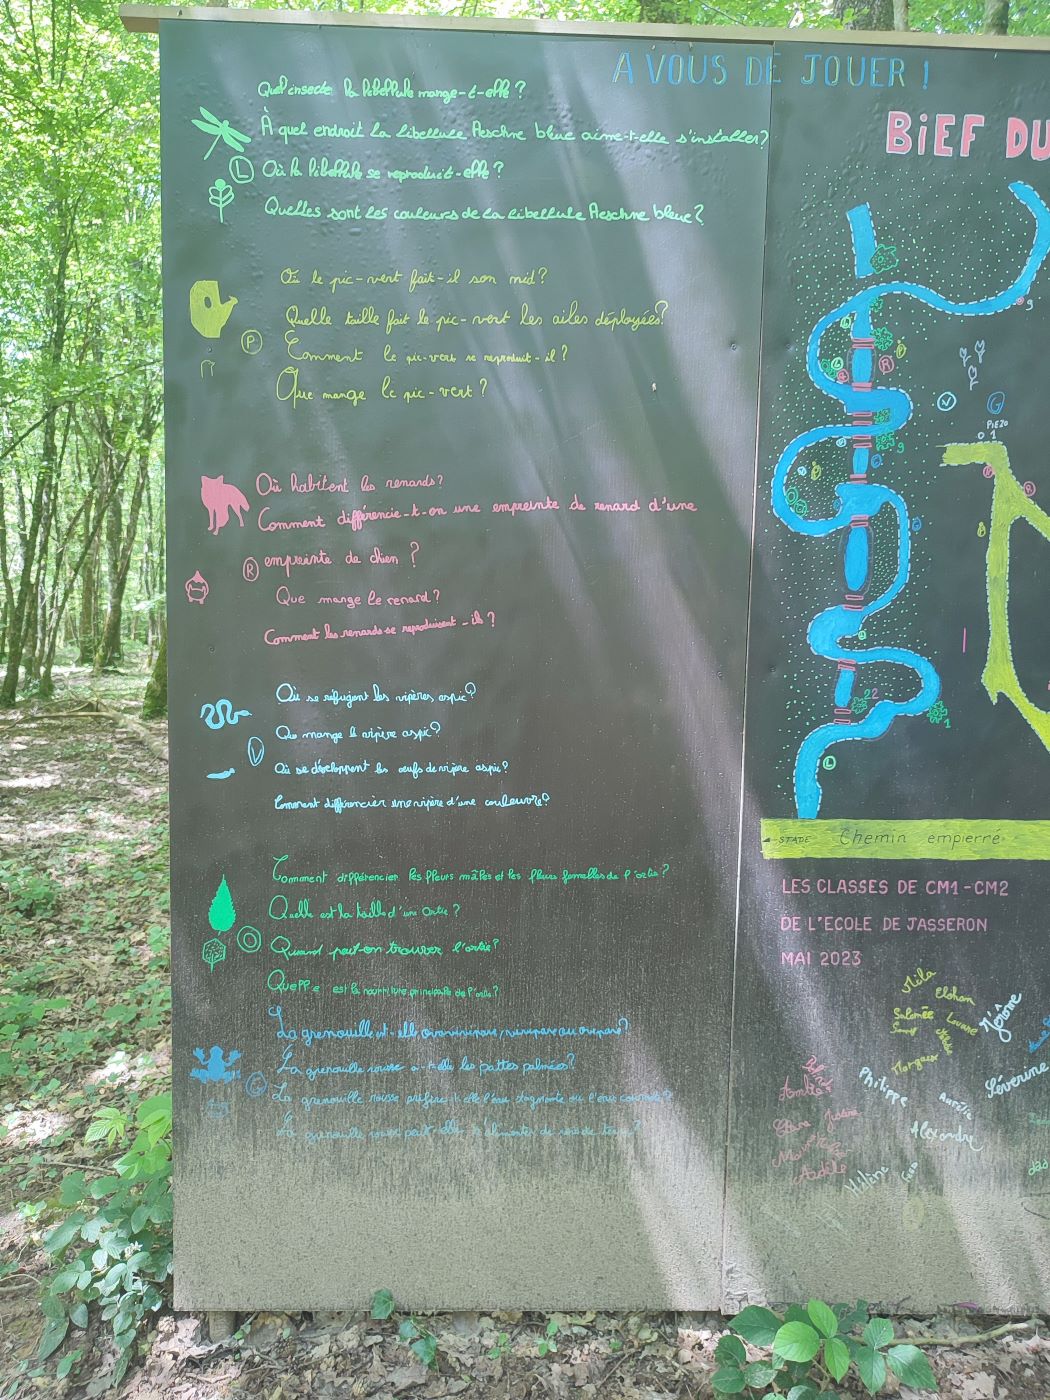 A VOUS DE JOUER !
Quel insecte la libellule mange-t-elle ?
À quel endroit la libellule Aeschne bleue aime-t-elle s'installer ?
L
Où la libellule se reproduit-elle ?
Quelles sont les couleurs de la libellule Aeschne bleue ?
Où le pic-vert fait-il son nid ?
Quelle taille fait le pic-vert les ailes déployées ?
P
Comment le pic-vert se reproduit-il ?
Que mange le pic-vert ?
Où habitent les renards ?
Comment différencie-t-on une empreinte de renard d'une
R
empreinte de chien ?
Que mange le renard ?
Comment les renards se reproduisent-ils ?
Où se réfugent les vipères aspic ?
Que mange la vipère aspic ?
V
Où se développent les oeufs de vipère aspic ?
Comment différencier une vipère d'une couleuvre ?
Comment différencier les fleurs mâles et les fleurs femelles de l'ortie ?
Quelle est la taille d'une Ortie ?
O
Quand peut-on trouver l'ortie ?
Quelle est la nourriture principale de l'ortie ?
La grenouille est-elle ovovivipare, vivipare ou ovipare ?
La grenouille rousse a-t-elle les pattes palmées ?
G
La grenouille rousse préfère-t-elle l'eau stagnante ou l'eau courante ?
La grenouille rousse peut-elle s'alimenter de vers de terre ?
BiEF DU
PIEZO
1
STADE
Chemin empierré
LES CLASSES DE CM1-CM2
DE L'ECOLE DE JASSERON
MAI 2023
Mila
Elohan
Salomée
Louane
Jérôme
Margaux
Philippe
Aurélie
Séverine
Alexandre
Hélène